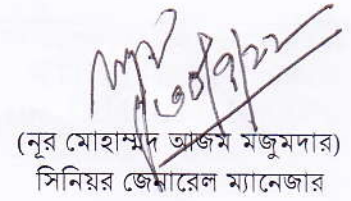 ৩০/১/২২
(নূর মোহাম্মদ আজম মজুমদার)
সিনিয়র জেনারেল ম্যানেজার